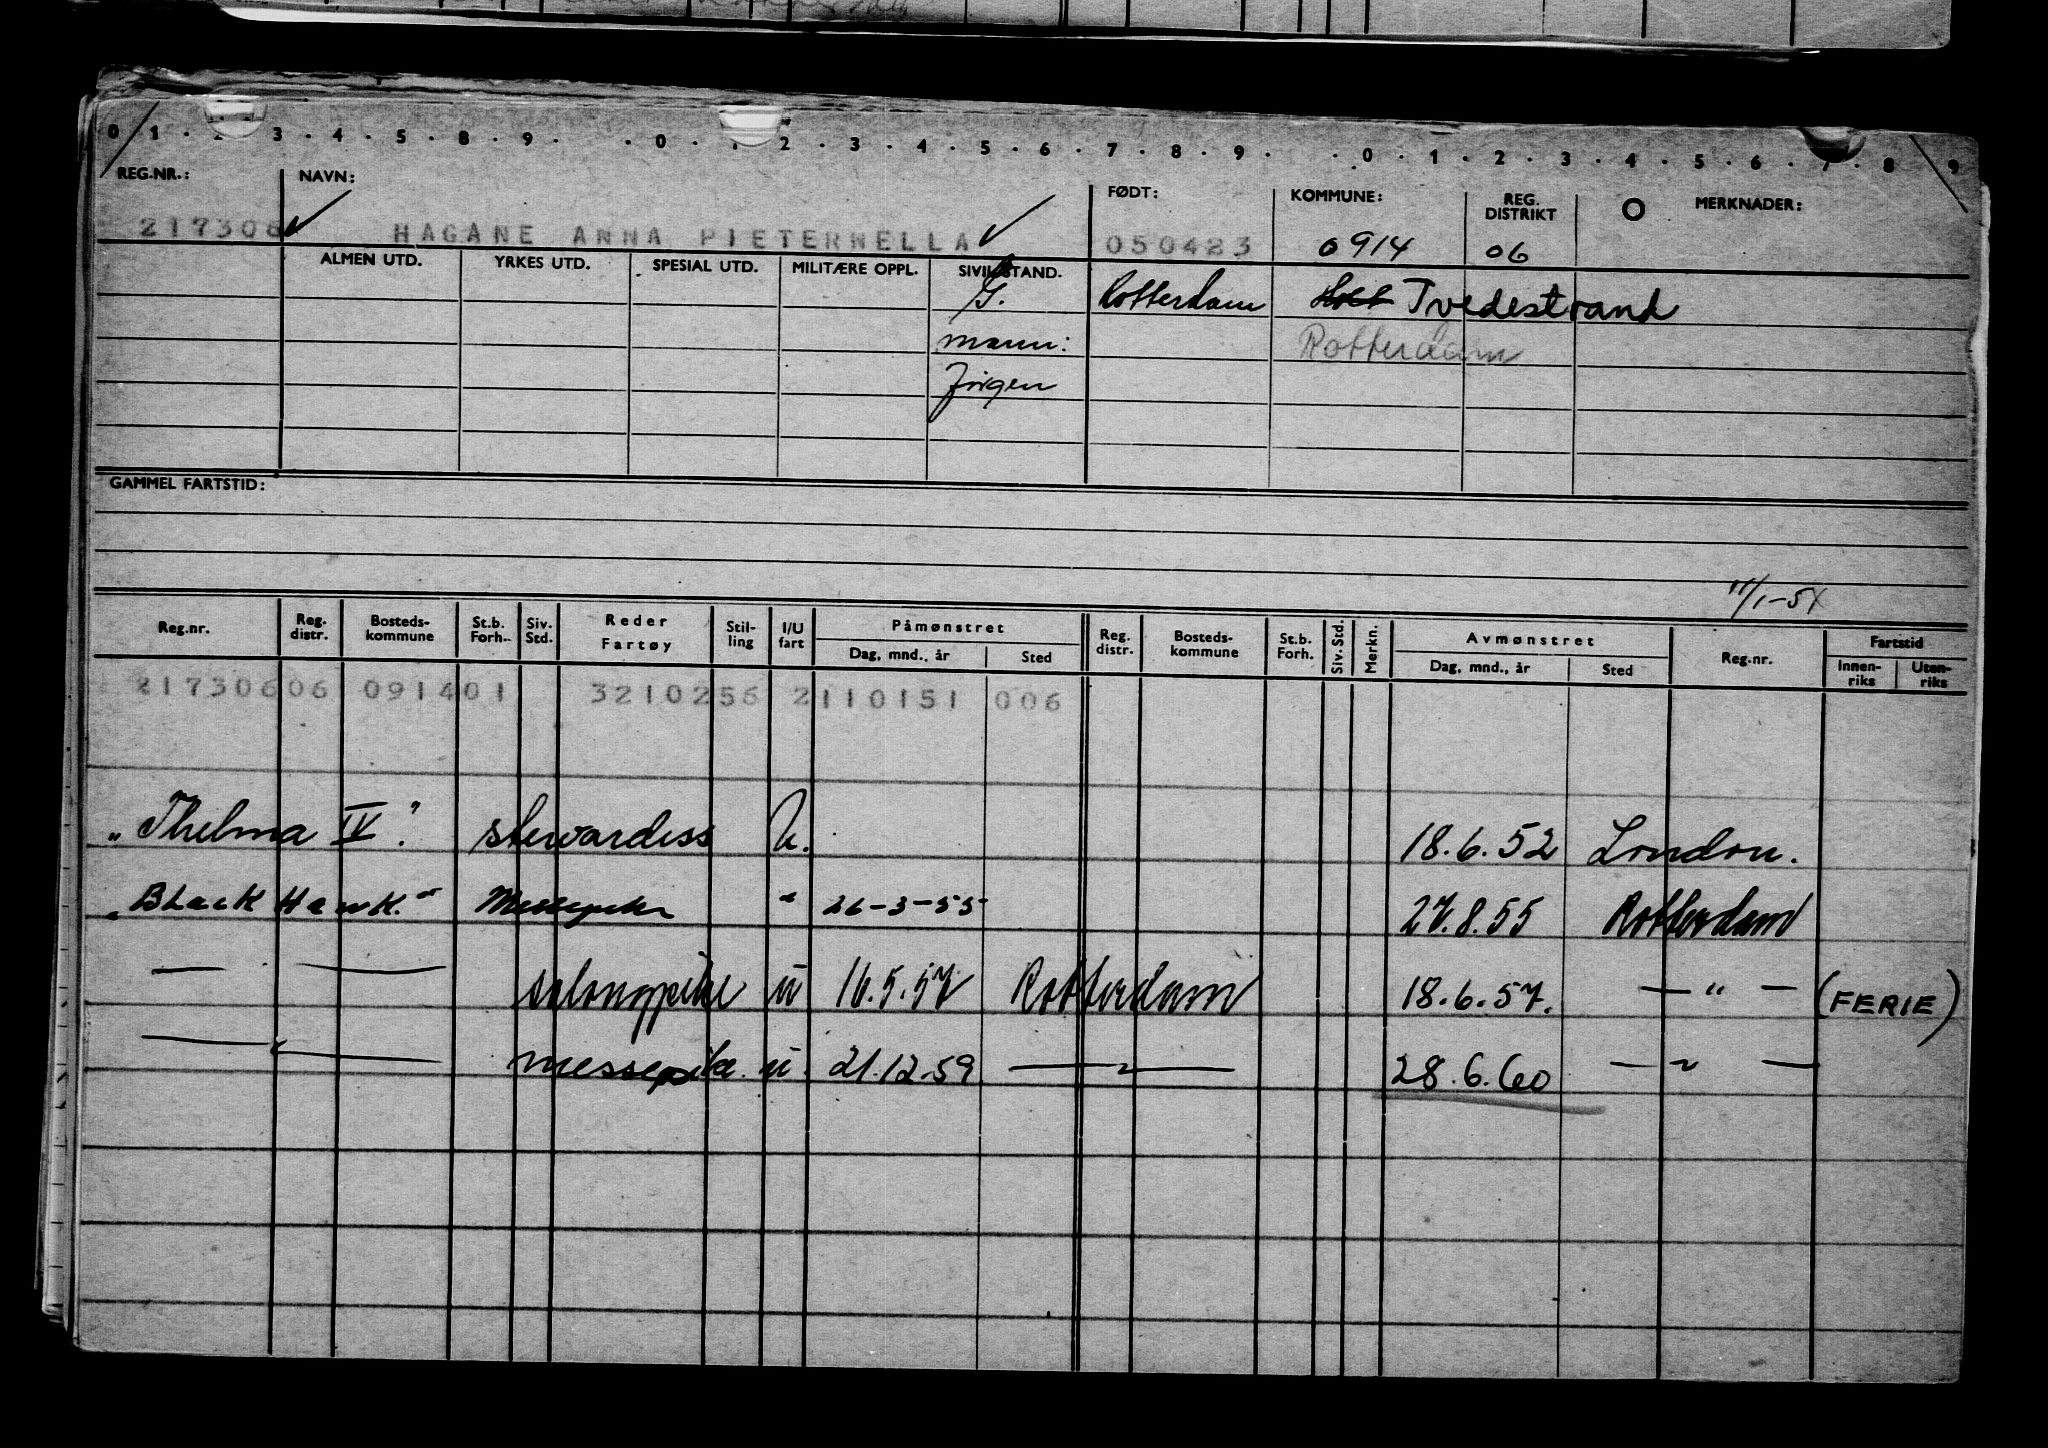 0 1 . 2 . 3 . 4 . 5 . 8 . 9 . . 0 . 1 . 2 . 3 . 4 . 5 . 6 . 7 . 8 . 9 . . 0 . 1 . 2 . 3 . 4 . 5 . 6 . 7 . 8 . 9
REG.NR.: NAVN: FØDT: KOMMUNE: REG. DISTRIKT O MERKNADER:
217306 HAGANE ANNA PIETERNELLA 050423 0914 06
ALMEN UTD. YRKES UTD. SPESIAL UTD. MILITÆRE OPPL. SIVILSTAND.
G. Rotterdam Holt Tvedestrand
mann: Rotterdam
Jörgen
GAMMEL FARTSTID:
11/1-54
Reg.nr. Reg. distr. Bosteds- kommune St.b. Forh.. Siv. Std. Reder Fartøy Stil- ling I/U fart Påmønstret Reg. distr. Bosteds- kommune St.b. Forh. Siv. Std. Merkn. Avmønstret Reg.nr. Fartstid
Dag, mnd., år Sted Dag, mnd., år Sted Innen- riks Uten- riks
217306 06 0914 01 3210256 2110151 006
"Thelma IV". stewardess U. 18.6.52 London.
"Black Hawk." Messepike " 26-3-55 27.8.55 Rotterdam
— — salongpike u 16.5.57 Rotterdam 18.6.57. — " — (FERIE)
— " — messepike. u. 21.12.59 — " — 28.6.60 — " —